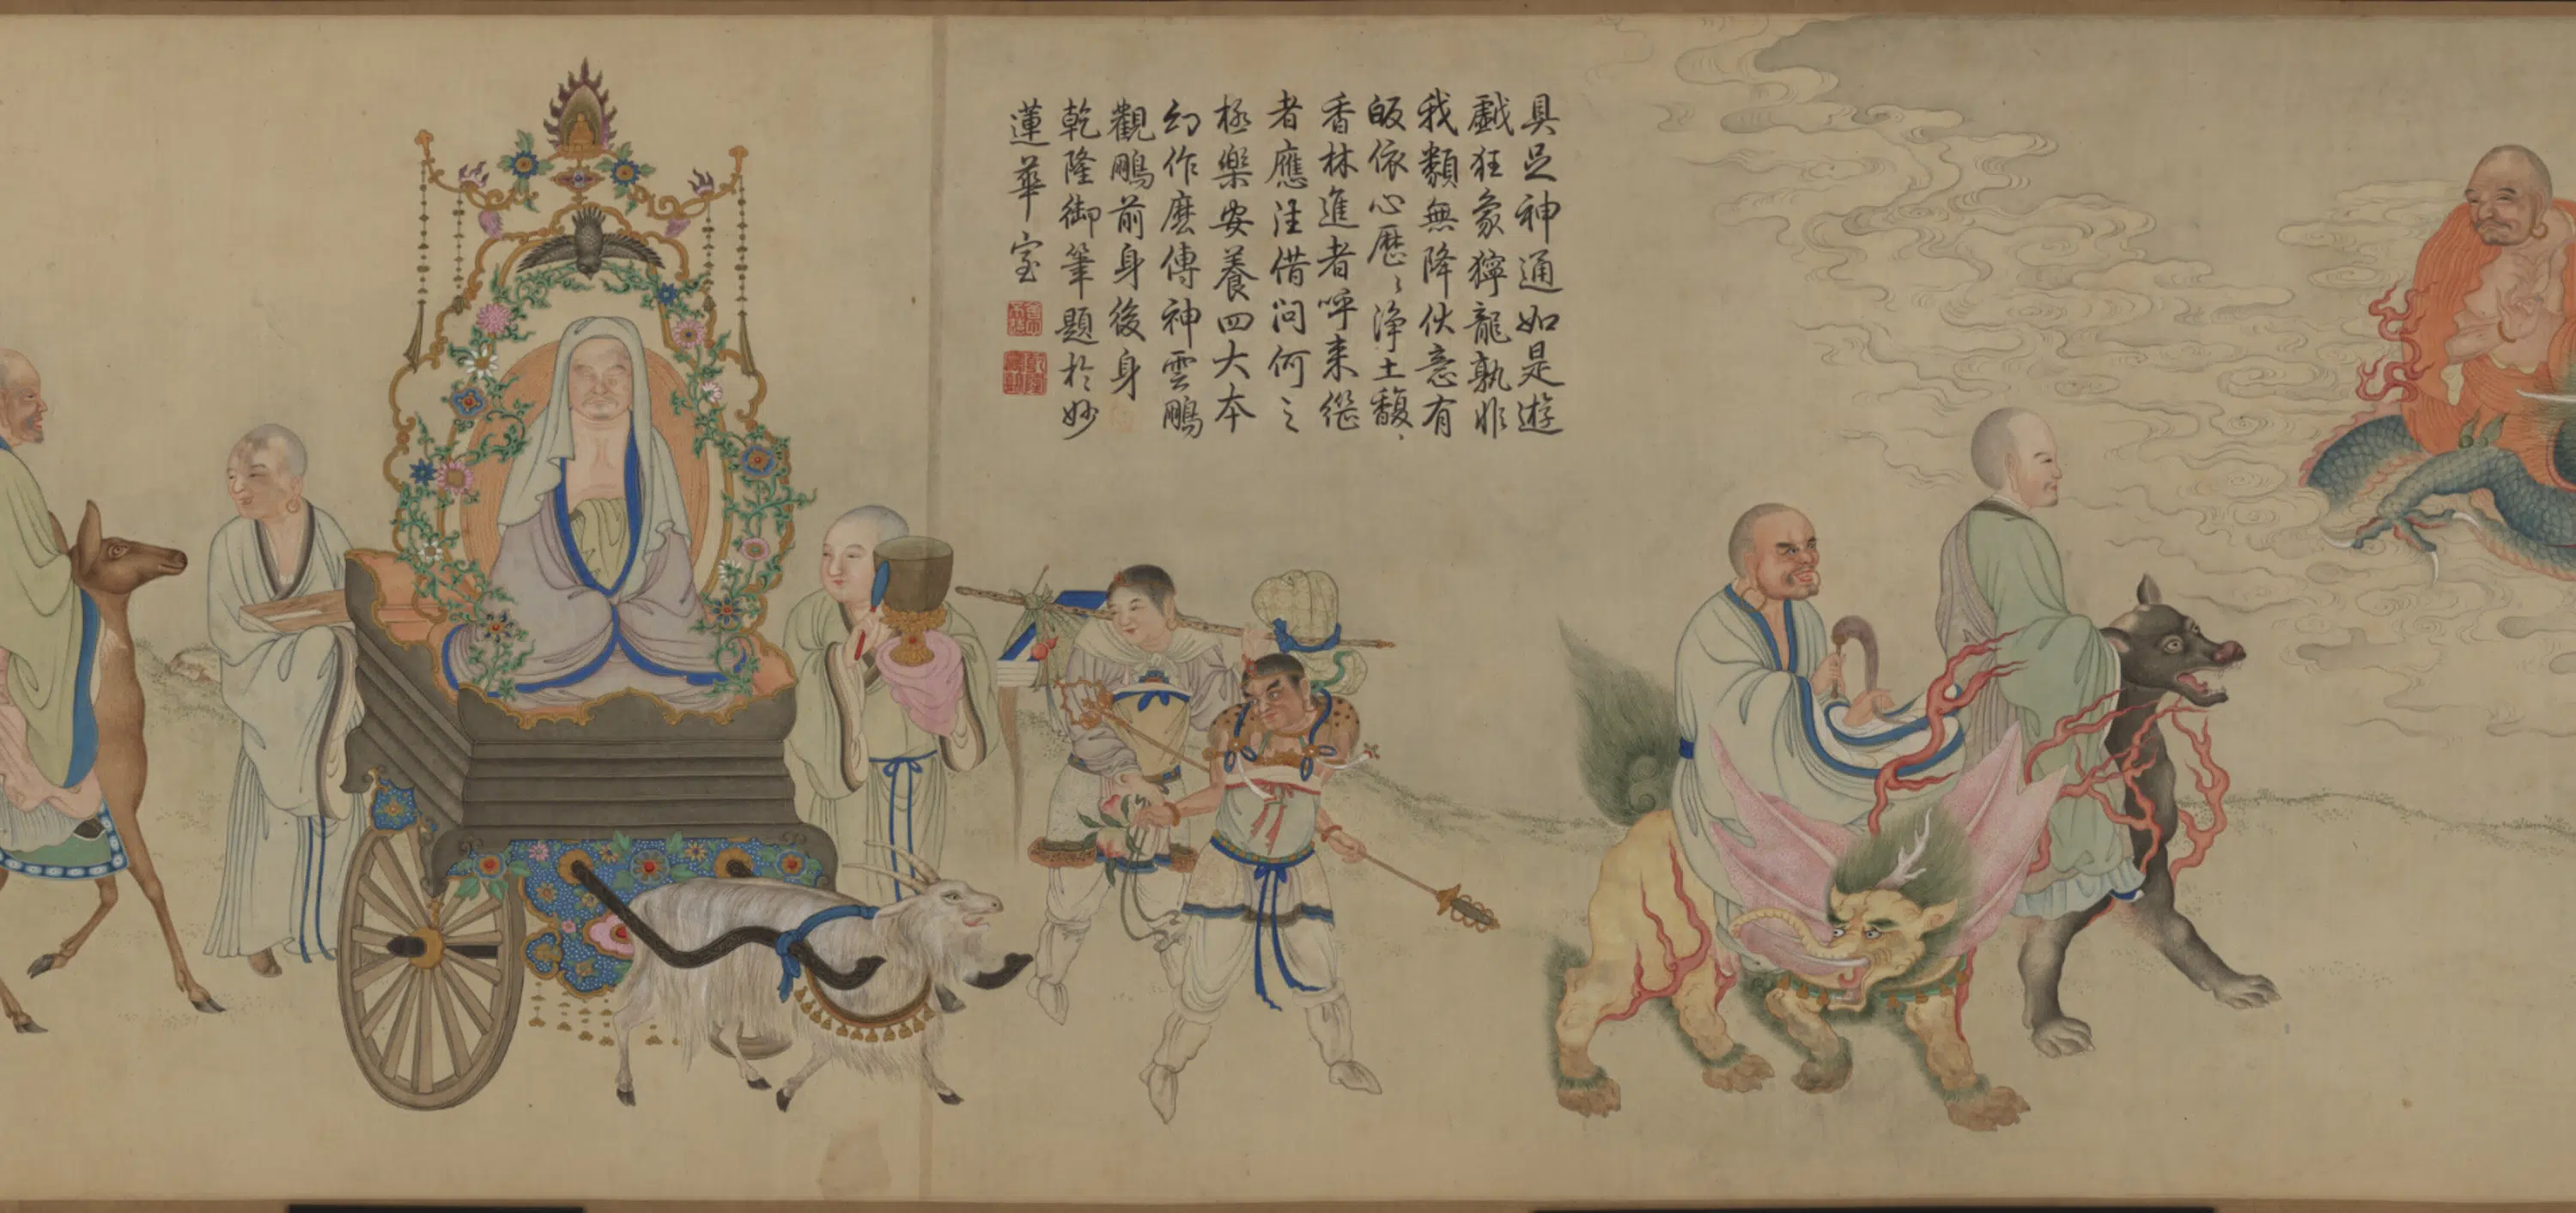 具足神通如是遊
戲狂象獰龍孰非
我類無降伏意有
皈依心歷〻淨土馥〻
香林進者呼来繼
者應往借问何之
極樂安養四大本
幻作麽傳神雲鵬
觀鵬前身後身
乾隆御筆題於妙
蓮華室
乾隆宸翰